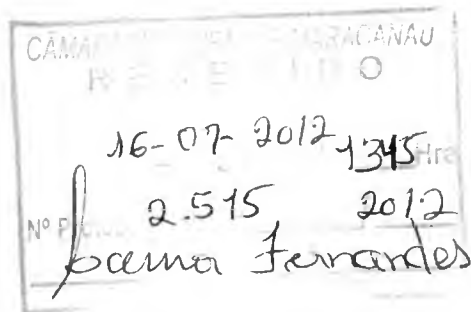 CÂMARA MARACANAÚ
RECEBIDO
16-07-2012 1345 Hrs
Nº 2.515 2012
Joema Fernandes